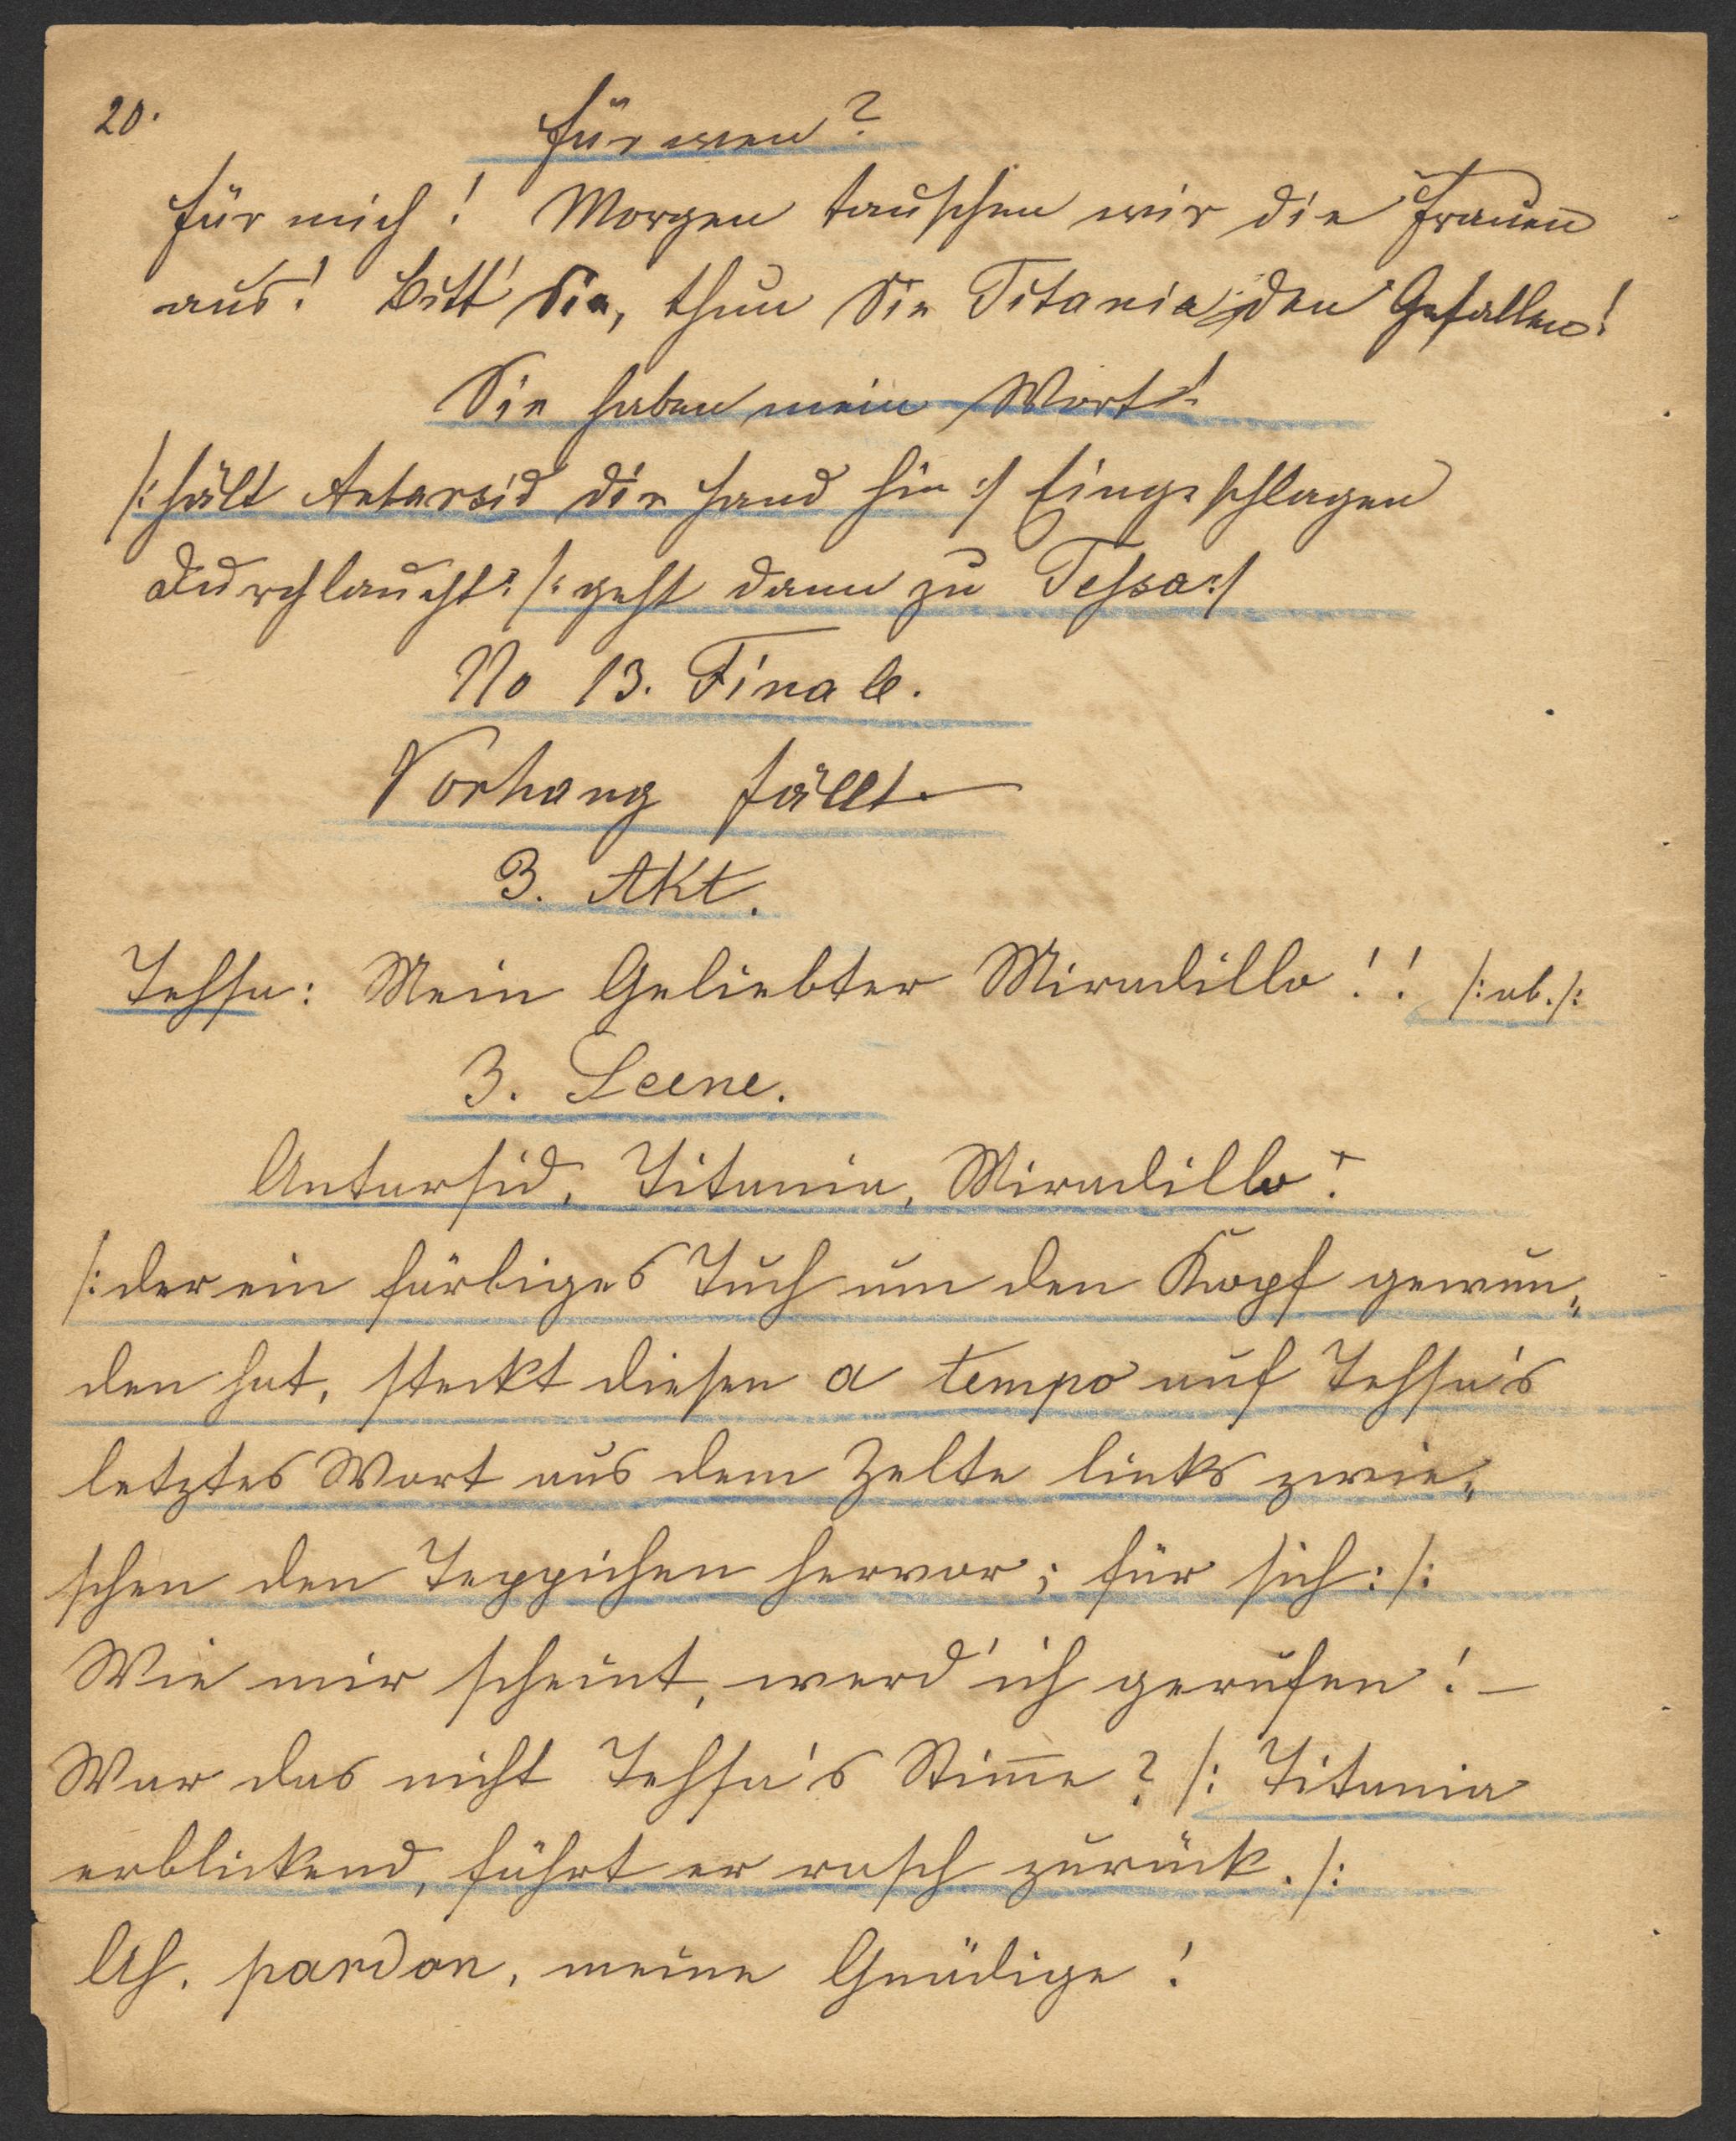 20.
Für wen?
Für mich! Morgen tauschen wir die Frauen
aus! Bitt' Sie, thun Sie Titania den Gefallen!
Sie haben mein Wort!
/: hält Antarsid die Hand hin :/ Eingeschlagen
Durchlaucht? /: geht dann zu Tessa :/
No 13. Finale.
Vorhang fällt.
3. Akt.
Tessa: Mein Geliebter Miradillo!! /: ab. /:
3. Scene.
Antarsid, Titania, Miradillo!
/: der ein färbiges Tuch um den Kopf gewun„
den hat, steckt diesen a tempo auf Tessa's
letztes Wort aus dem Zelte links zwie„
schen den Teppichen hervor; für sich: /:
Wie mir scheint, werd' ich gerufen! –
War das nicht Tessa's Stim̄e? /: Titania
erblickend, führt er rasch zurück. /:
Ah, pardon, meine Gnädige!